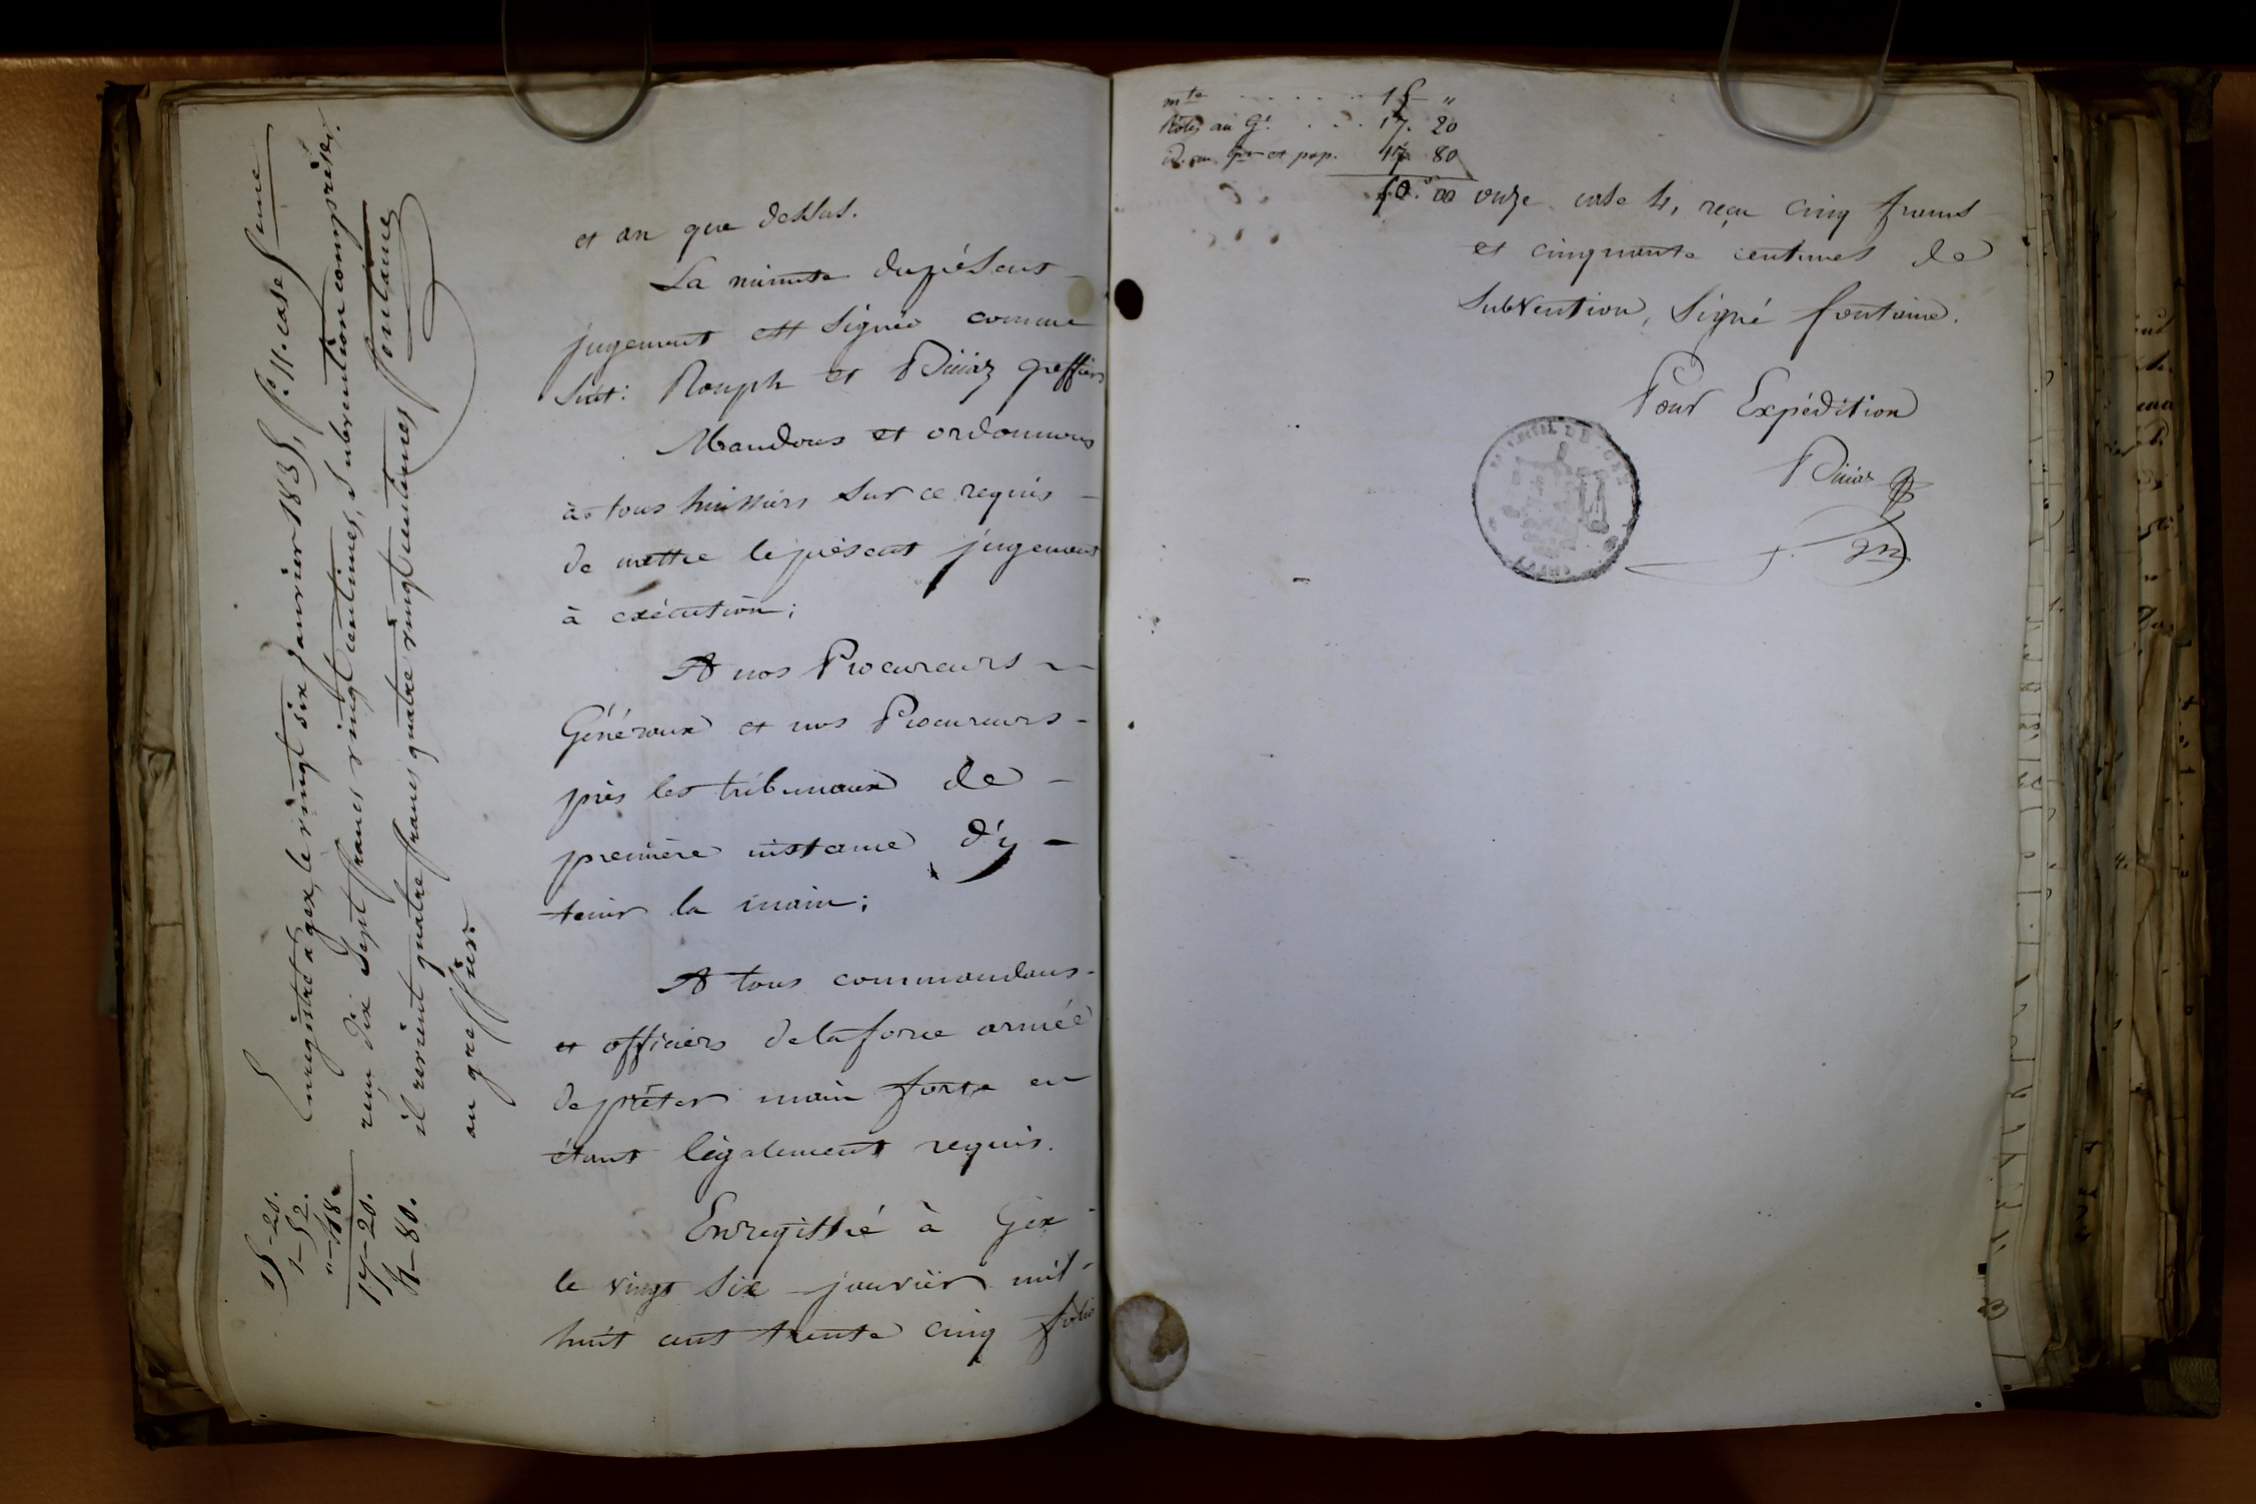 et an que dessus.
La minute du présent
jugement est signée comme
suit: Rouph et greffier
Mandons et ordonnons
à tous huissiers sur ce requis
de mettre le présent jugement
à exécution;
A nos Procureurs
Généraux et nos Procureurs
près les tribunaux de
première instance d'y
tenir la main;
A tous commandans
et officiers de la force armée
de prêter main forte en
étant légalement requis.
Enregistré à Gex
le vingt six janvier mil
huit cent trente cinq folio
Enregistré à gex, le vingt six Janvier 1835, f.º 11. case
reçu dix Sept francs vingt centimes, subvention comprise.
il revient quatre francs quatre vingt centimes fontaine
au greffier.
15-20.
1-52.
"-48
17-20.
4-80.
mte 15 "
17. 20
et pap. 80
onze case 4, reçu cinq francs
et cinquante centimes de
subvention, signé fontaine.
Pour Expédition